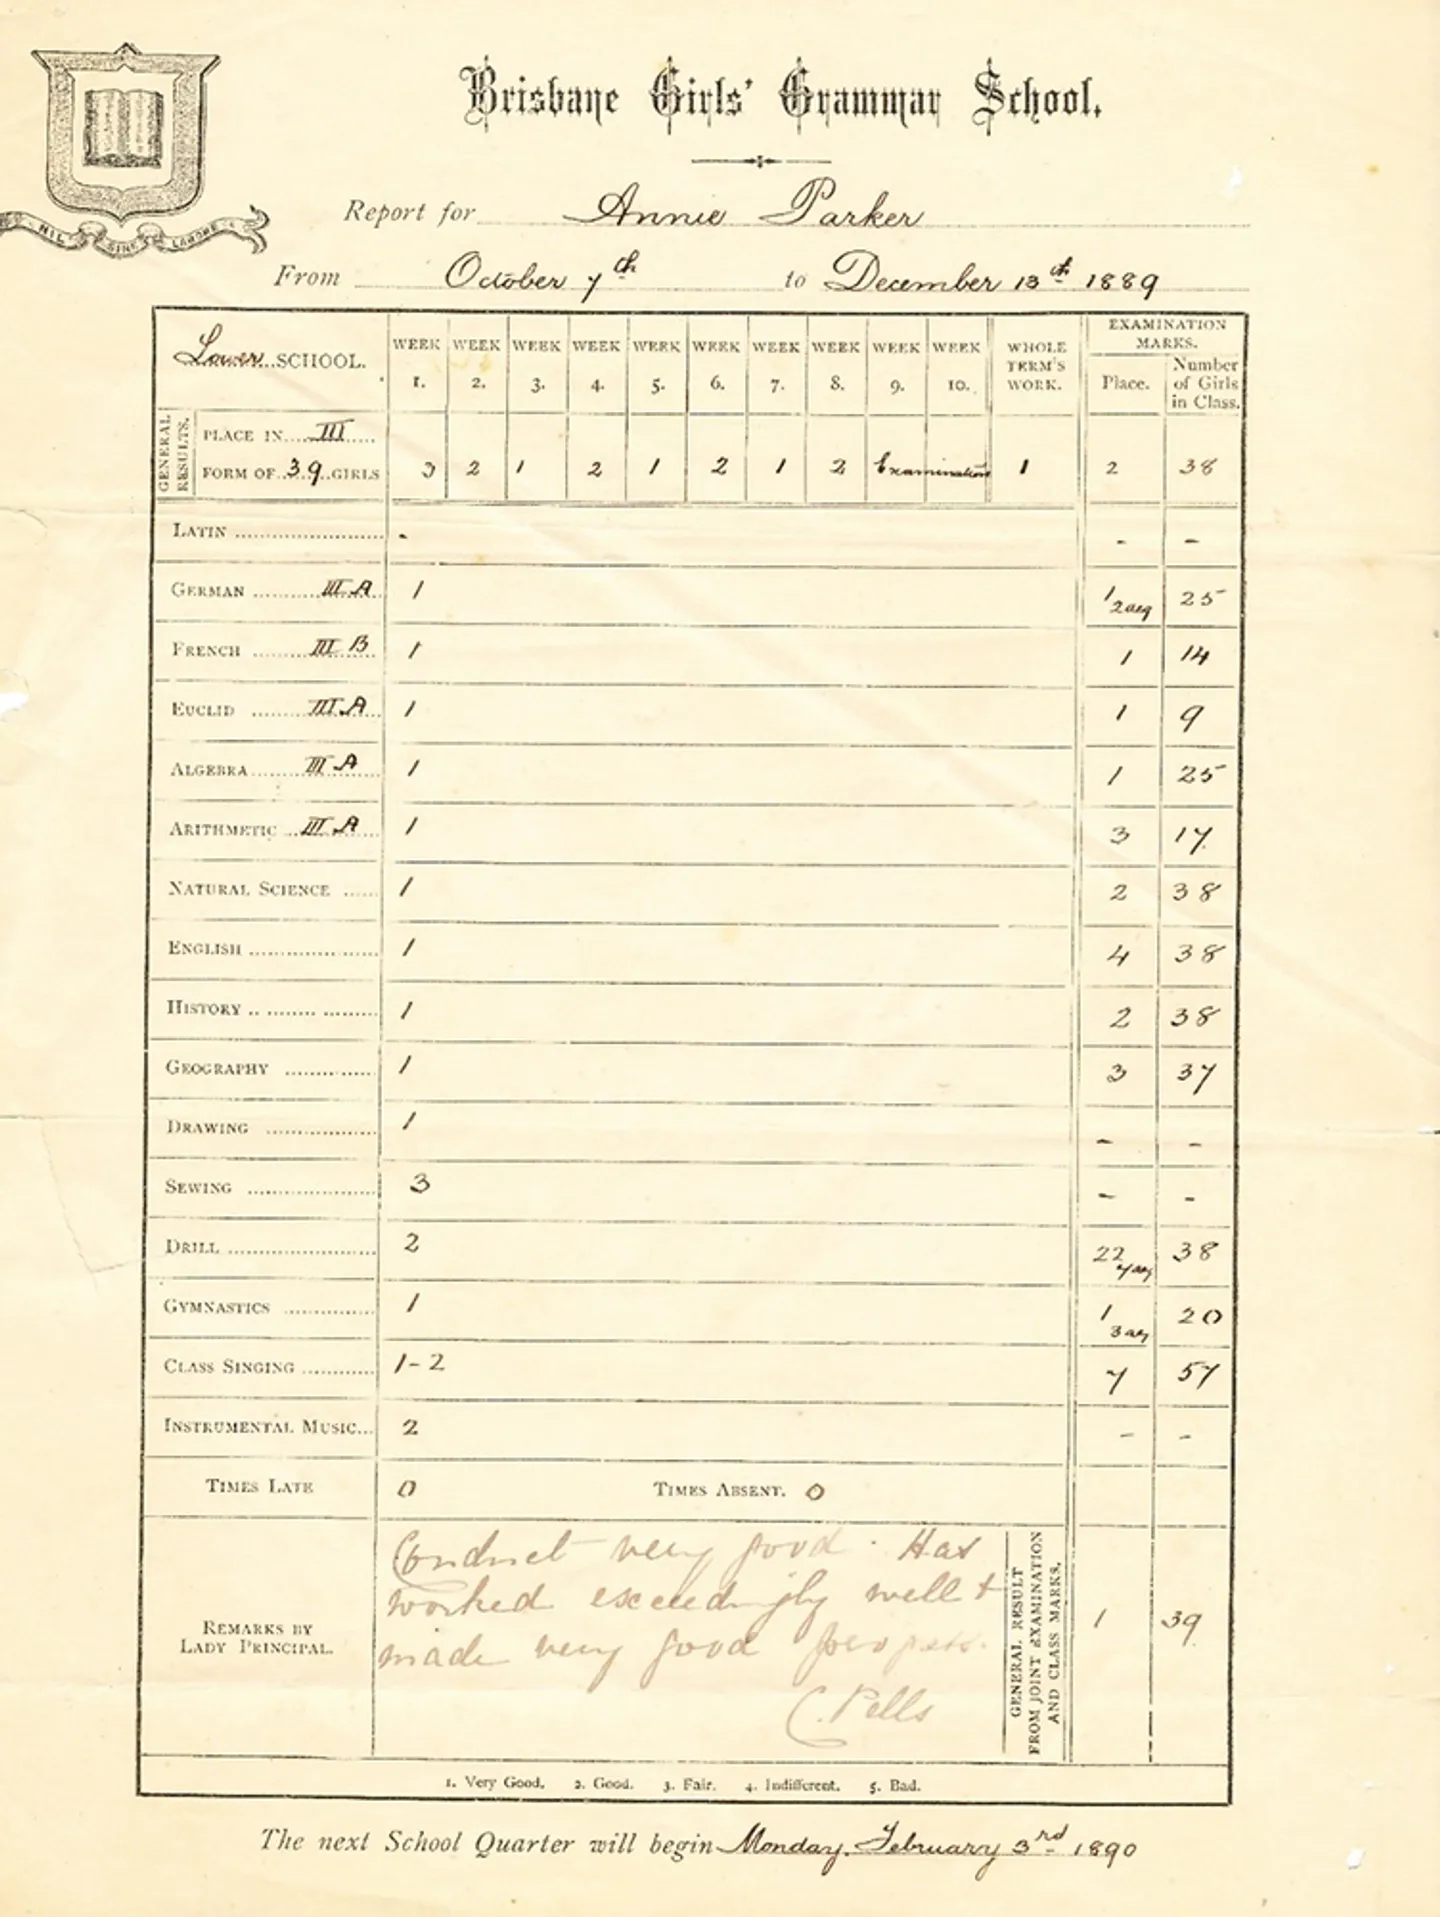 Brisbane Girls' Grammar School.
NIL SINE LABORE
Report for Annie Parker
From October 7th to December 13th 1889
Lower SCHOOL. WEEK 1. WEEK 2. WEEK 3. WEEK 4. WEEK 5. WEEK 6. WEEK 7. WEEK 8. WEEK 9. WEEK 10. WHOLE TERM'S WORK. EXAMINATION MARKS. Place. Number of Girls in Class.
GENERAL RESULTS. PLACE IN III
FORM OF 39 GIRLS 3 2 1 2 1 2 1 2 Examination 1 2 38
LATIN - - -
GERMAN III A 1 1 2 aeq 25
FRENCH III B 1 1 14
EUCLID III A 1 1 9
ALGEBRA III A 1 1 25
ARITHMETIC III A 1 3 17
NATURAL SCIENCE 1 2 38
ENGLISH 1 4 38
HISTORY 1 2 38
GEOGRAPHY 1 3 37
DRAWING 1 - -
SEWING 3 - -
DRILL 2 22 7 aeq 38
GYMNASTICS 1 1 3 aeq 20
CLASS SINGING 1-2 7 57
INSTRUMENTAL MUSIC 2 - -
TIMES LATE 0 TIMES ABSENT. 0
REMARKS BY LADY PRINCIPAL.
Conduct very good. Has
worked exceedingly well &
made very good progress.
C. Pells
GENERAL RESULT FROM JOINT EXAMINATION AND CLASS MARKS. 1 39
1. Very Good. 2. Good. 3. Fair. 4. Indifferent. 5. Bad.
The next School Quarter will begin Monday. February 3rd 1890